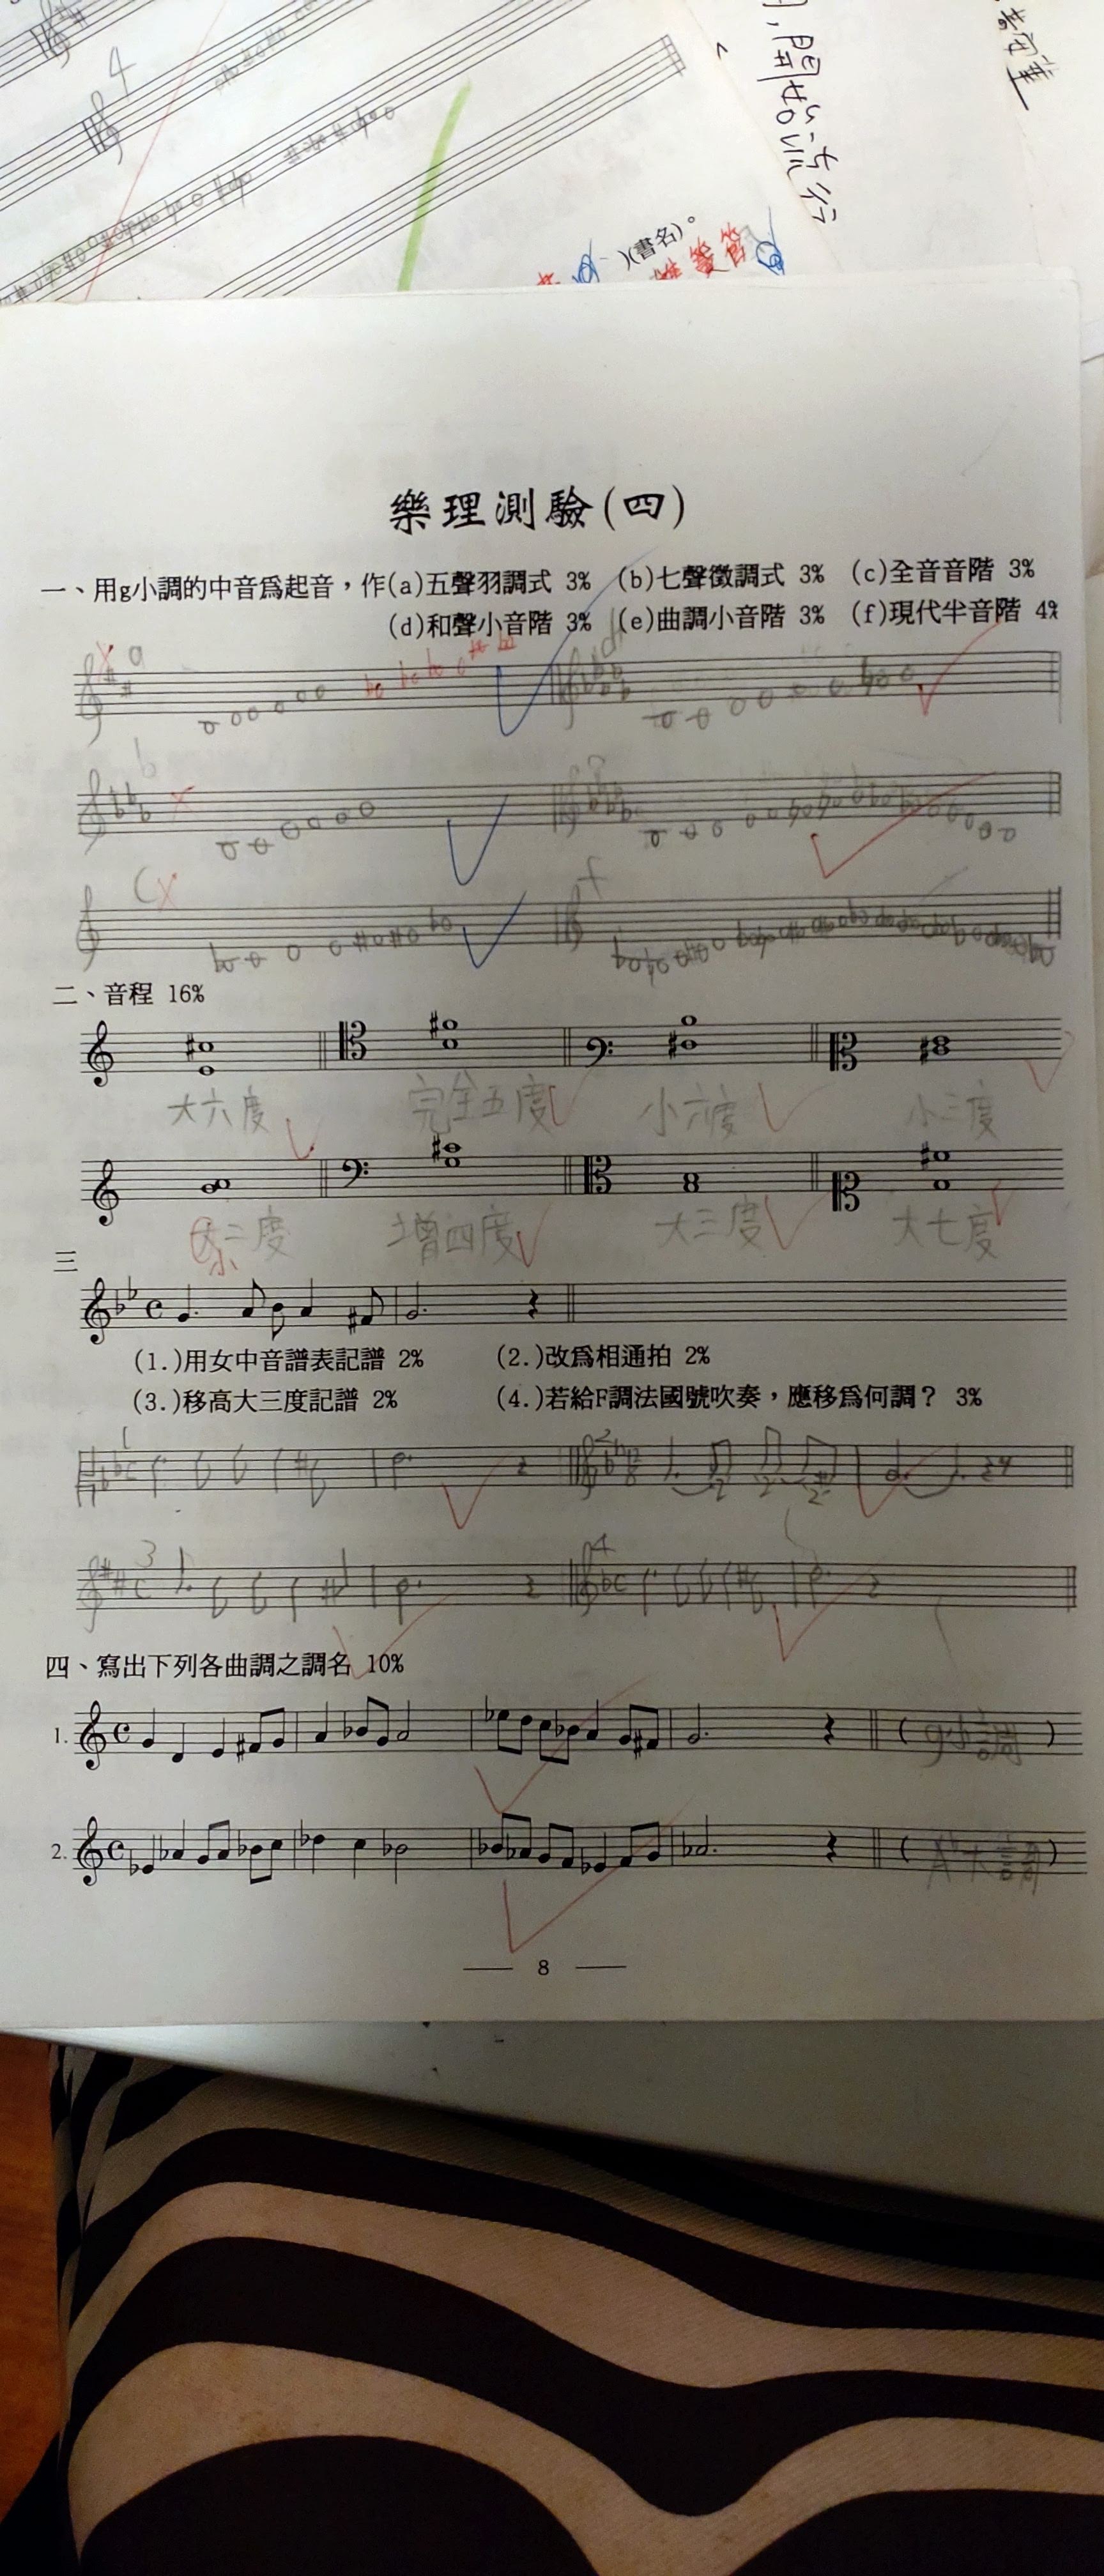 4
開始流行
)(書名)。
樂理測驗(四)
一、用g小調的中音爲起音，作(a)五聲羽調式 3% (b)七聲徵調式 3% (c)全音音階 3%
(d)和聲小音階 3% (e)曲調小音階 3% (f)現代半音階 4%
a d
b e
c f
二、音程 16%
大六度 完全五度 小六度 小三度
大二度 增四度 大三度 大七度
小
三
(1.)用女中音譜表記譜 2% (2.)改爲相通拍 2%
(3.)移高大三度記譜 2% (4.)若給F調法國號吹奏，應移爲何調？ 3%
1 2
3 4
四、寫出下列各曲調之調名 10%
1. (g小調)
2. (A♭大調)
8